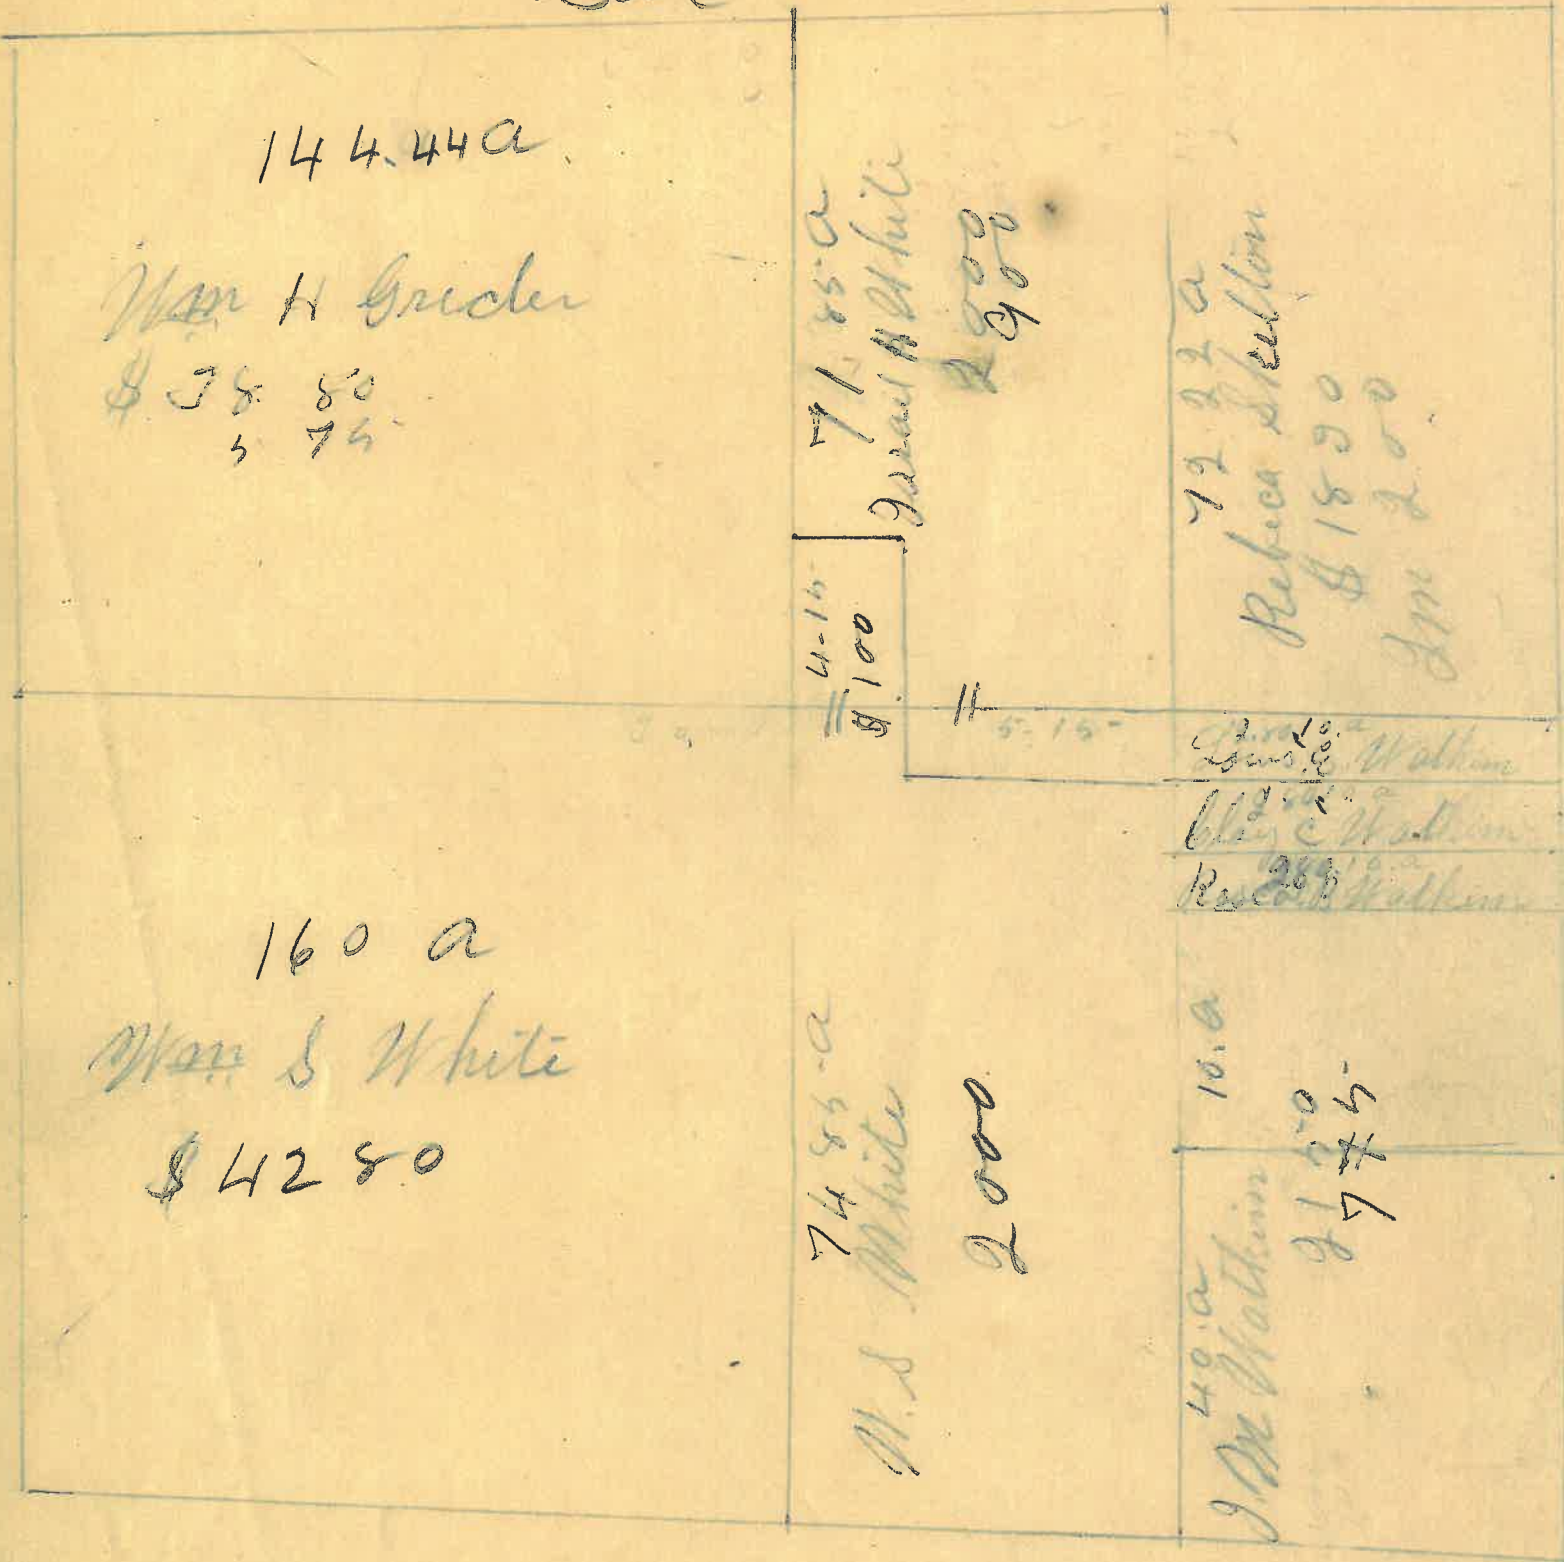 144.44 a
Wm H Greder
$ 38 80
5 75
71. 85 a
Israel H White
2000
900
4-15
$ 100
5-15
72 22 a
Rebeca Skelton
$ 1890
Im 200
10.a
Watkins
Clay C Watkins
Watkins
160 a
Wm S White
$ 4280
74 85 a
W. S White
2000
10.a
40.a
J. M Watkins
2150
775